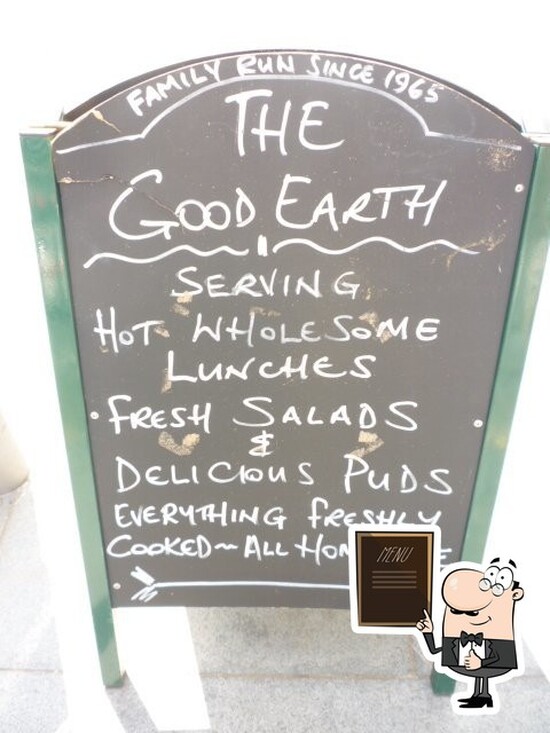 FAMILY RUN SINCE 1965
THE
GOOD EARTH
SERVING
HOT WHOLESOME
LUNCHES
FRESH SALADS
&
DELICIOUS PUDS
EVERYTHING FRESHLY
COOKED~ALL
MENU